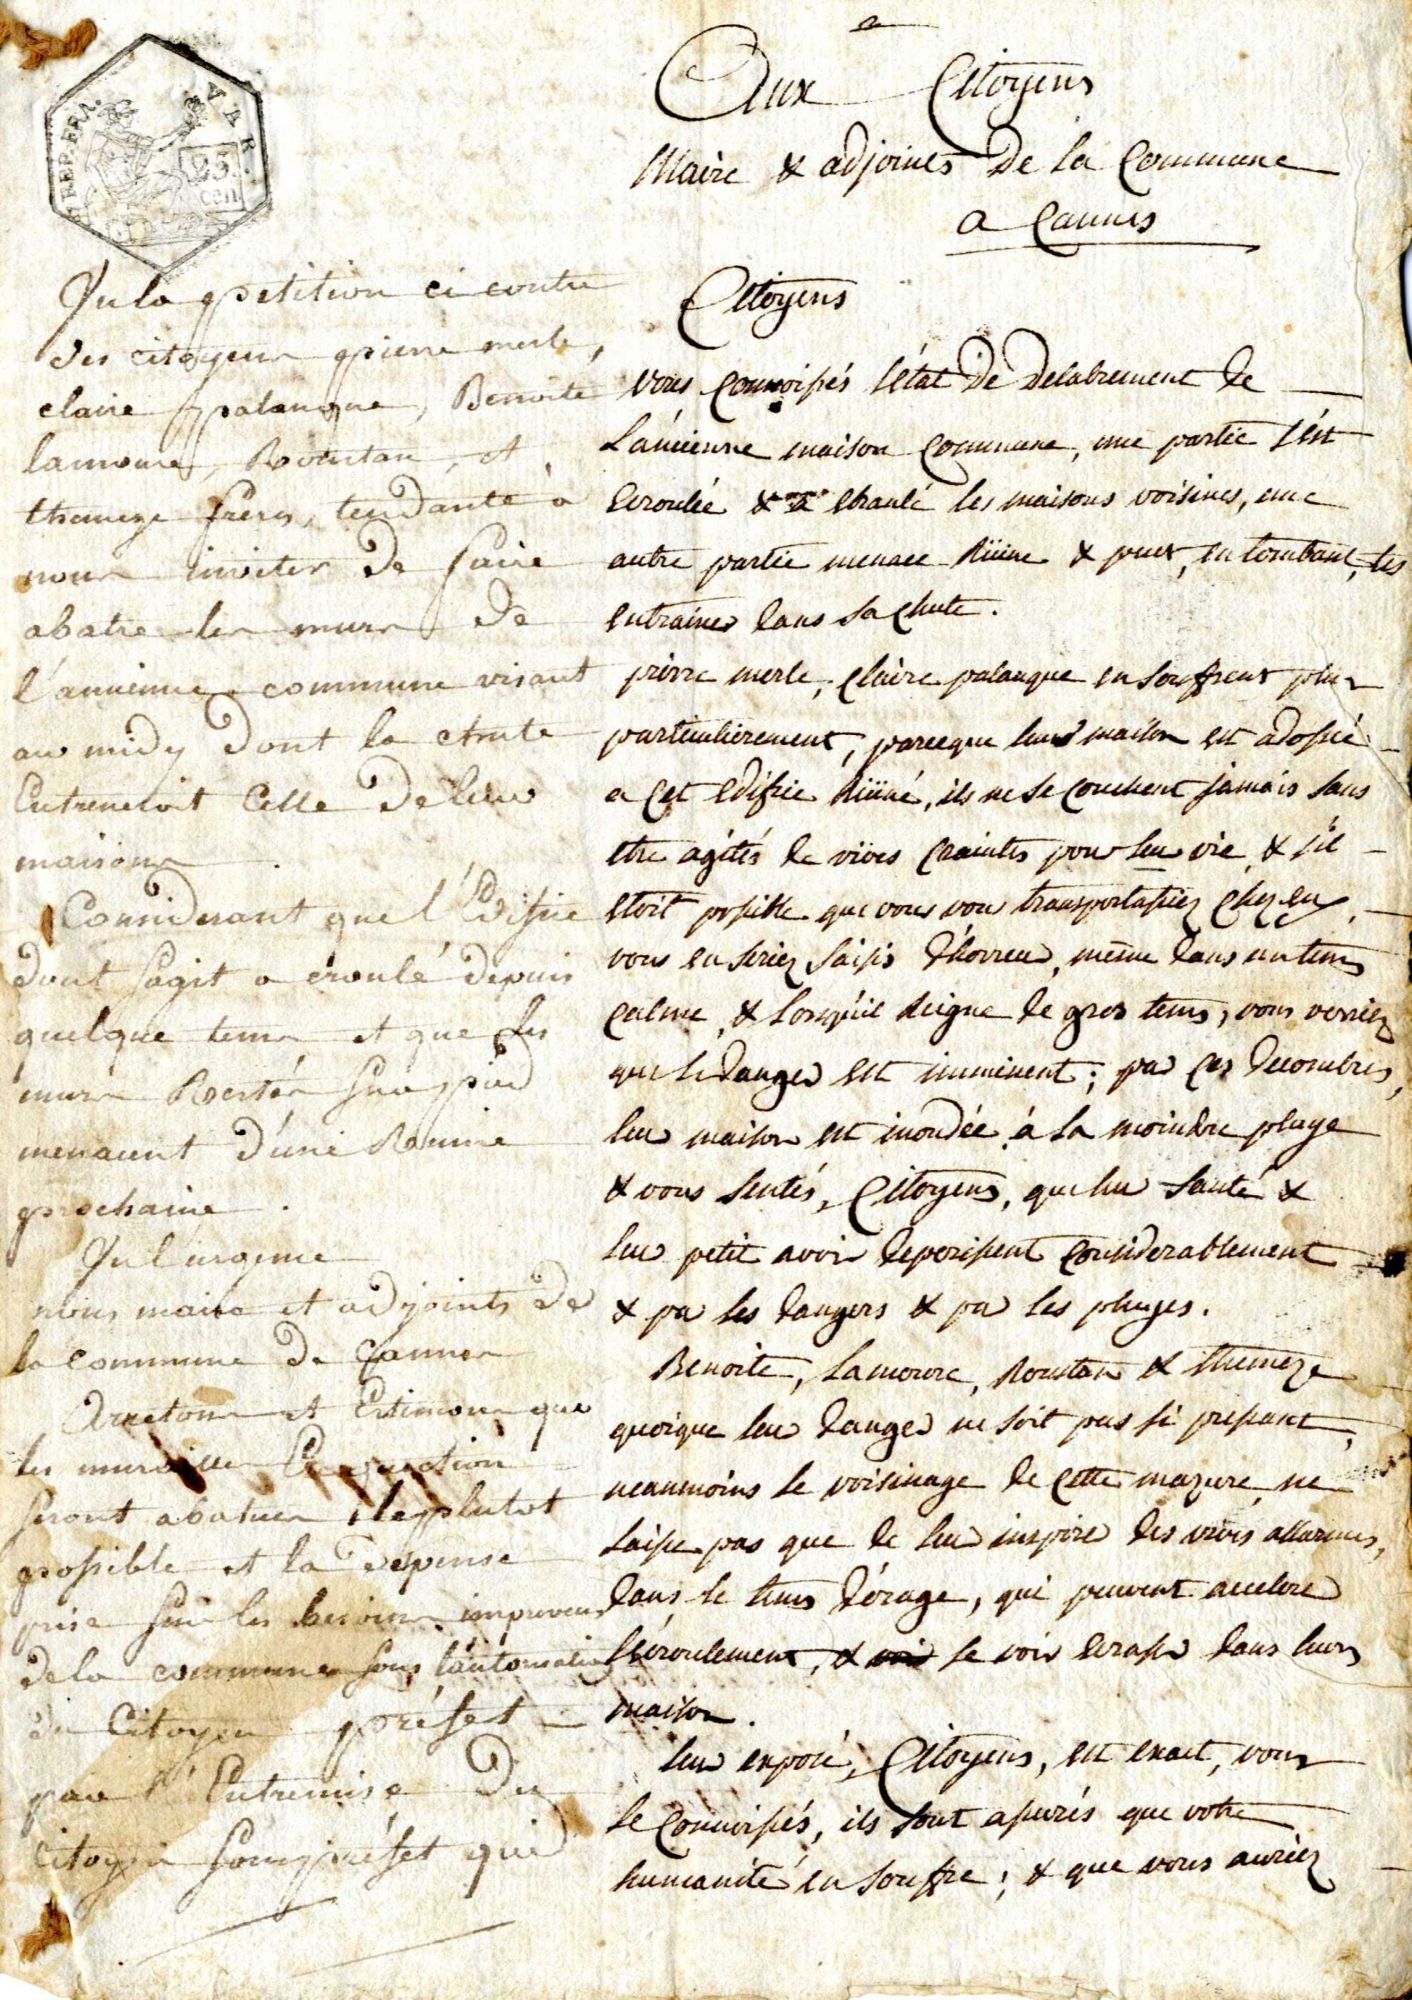 REP. FRA.
VAR.
25.
cen
Aux Citoyens
Maire & adjoints De la Commune
a Cannes
Citoyens
vous connoissés l'état De Delabrement de
L'ancienne maison Commune, une partie s'est
ecroulée & a ebranlé les maisons voisines, une
autre partie menace Rüine & peut, en tombant, les
entrainer dans sa chute.
pierre merle, Claire palanque en souffrent plus
particulierement, parceque leur maison est adossée
a Cet edifice Rüiné, ils ne se couchent jamais sans
etre agités de vives craintes pour leur vie, & s'il
etoit possible que vous vous transportassiez chez eux,
vous en seriez saisis d'horreur, même dans un tems
calme, & Lorsqu'il Reigne de gros tems, vous verriez
que le danger est imminent; par Ces decombres,
leur maison est inondée à la moindre pluye
& vous sentés, Citoyens, que leur santé &
leur petit avoir deperissent considerablement
& par les dangers & par les pluyes.
Benoite, Lamoure, Roustan & themeze
quoique leur danger ne soit pas si pressant,
neanmoins le voisinage de Cette mazure ne
laisse pas que de leur inspirer des vives allarmes,
dans le tems d'orage, qui peuvent accelerer
l'ecroulement, & se voir ecraser dans leurs
maison.
leur exposé, Citoyens, est exact, vous
le Connoissés, ils sont assurés que votre
humanité en souffre; & que vous auriez
Vu la petition ci contre
des citoyens pierre merle,
claire palanque, Benoite
lamoure, Roustan, et
themeze freres, tendante à
nous inviter De faire
abatre les murs De
l'ancienne commune visant
au midy Dont la chute
Entreneroit Celle De leur
maisons.
Considerant que l'Edifice
dont sagit a croulé depuis
quelque tems et que les
murs Restés sur pied
menacent d'une Rouine
prochaine.
Vu l'urgence
nous maire et adjoints de
la commune de Cannes
Arretons et Estimons que
les murailles En question
seront abatues le plutot
possible et la depense
prise sur les besoins imprevus
de la commune sous l'autorisation
du Citoyen préfet
par l'Entremise Du
citoyen sous préfet qui